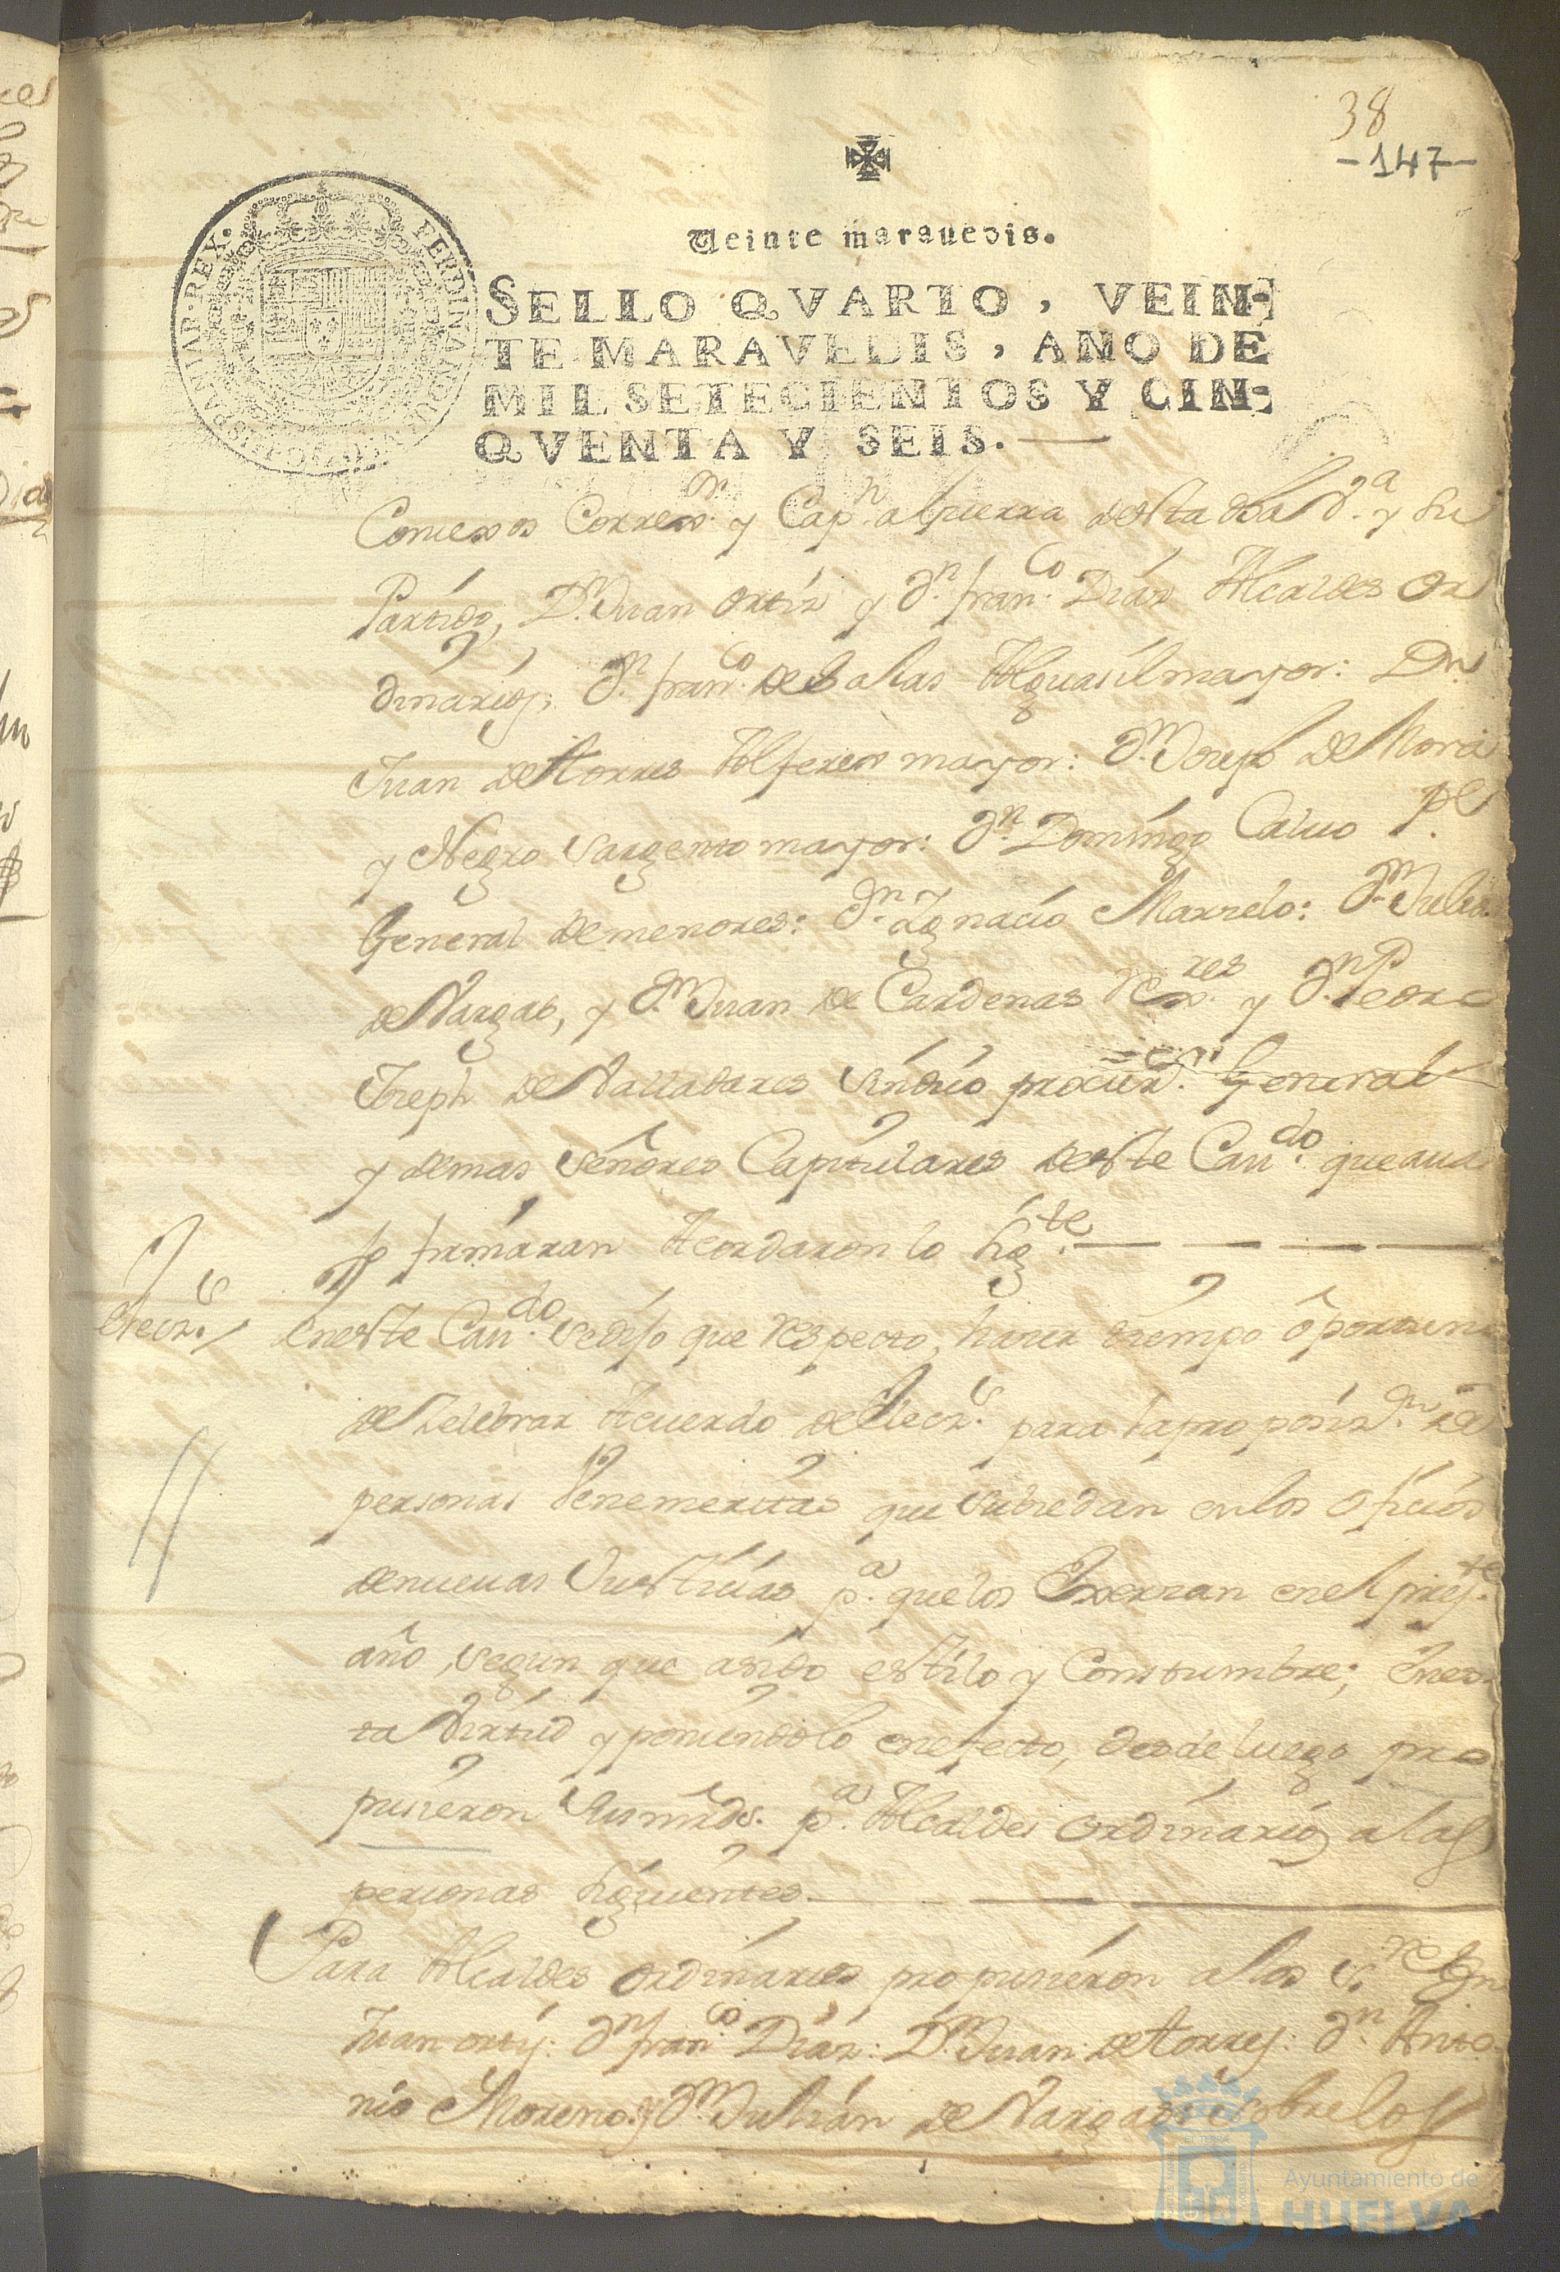 38
-147-
Veinte maravedis.
SELLO QVARTO, VEIN-
TE MARAVEDIS, AÑO DE
MIL SETECIENTOS Y CIN-
QVENTA Y SEIS.
HISPANIAR·REX· FERDINANDUS·VI·D·G·
Correxor. y Capn. alguerra desta Va. y su
Partido, Dn. Juan Ortiz y Dn. franco. Diaz Alcaldes Or
dinarios, Dn. franco. de Salas Alguasil mayor: Dn.
Juan de Torres Alferes mayor: Dn. Joseph de Mora
y Negro Sargento mayor: Dn. Domingo Calvo Pe.
General de menores: Dn. Ignacio Marrelo: Dn. Julian
de Vargas, y Dn. Juan de Cardenas Rexres. y Dn. Pedro
Joseph de Valladares Sindico procur. General
y demas Señores Capitulares deste Caudo. que aua
jo firmaran Acordaron lo sigte.
Elecz.s
En este Caudo. se dijo que respecto, hauer tiempo oportuno
de Zelebrar Acuerdo de Elecz.s para la proposizn. de
personas Venemeritas que subcedan en los oficios
de nueuas Justicias pa. que los Exerzan en el preste.
año, segun que asido estilo y Constumbre; En es-
ta Virtud y poniendolo enefecto, desde luego pro
pusieron Susmrds. pa. Alcaldes ordinarios alas
personas siguientes
Para Alcaldes ordinarios propusieron a los Sres. Dn
Juan ortiz: Dn. franco. Diaz: Dn. Juan de Torres: Dn. Anto
nio Moreno y Dn. Julian de Vargas sobre los
Ayuntamiento de
HUELVA